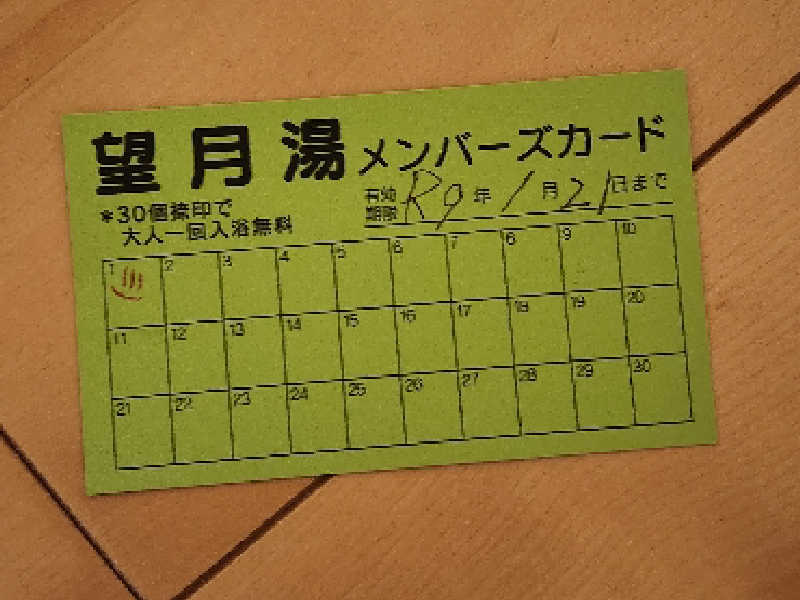 望月湯 メンバーズカード
*30個捺印で
大人一回入浴無料
有効期限 R9年1月21日まで
1 2 3 4 5 6 7 8 9 10
11 12 13 14 15 16 17 18 19 20
21 22 23 24 25 26 27 28 29 30